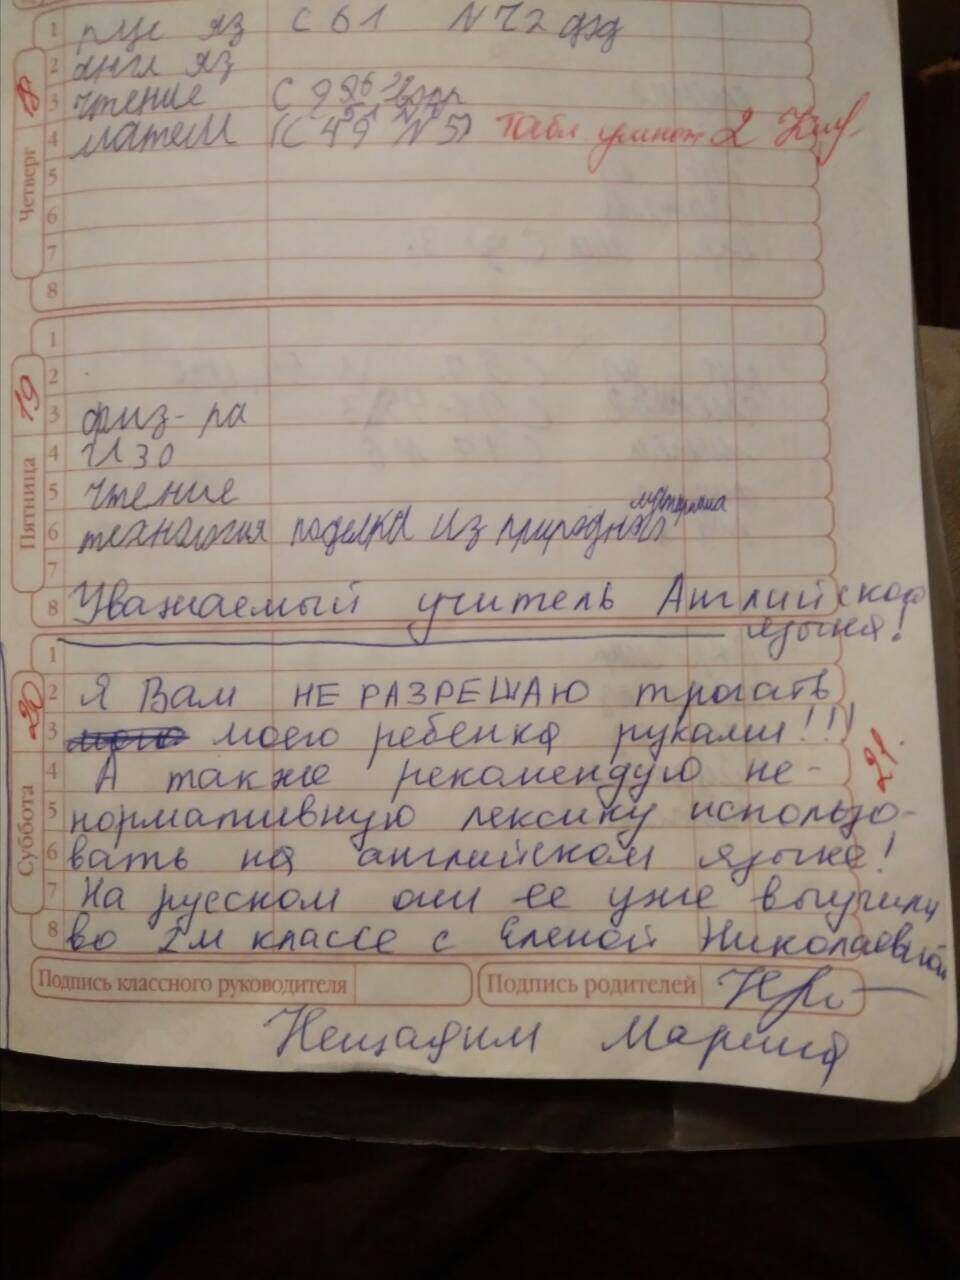 1 рус яз С 61 N 72 дзд
18
2 англ яз
3 чтение С 99
4 матем (С 49 N 5) Табл умнож 2
Четверг
5
6
7
8
1
2
19
3 физ-ра
4 Изо
5 чтение
Пятница
6 технология поделка из природного материала
7
8 Уважаемый учитель Английского
языка!
1
20
2 Я Вам НЕ РАЗРЕШАЮ трогать
3 моего ребенка руками!!!
21.
4 А также рекомендую не-
Суббота
5 нормативную лексику использо-
6 вать на английском языке!
7 На русском они ее уже выучили
8 во 2м классе с Еленой Николаевной
Подпись классного руководителя Подпись родителей
Нещадим Марина